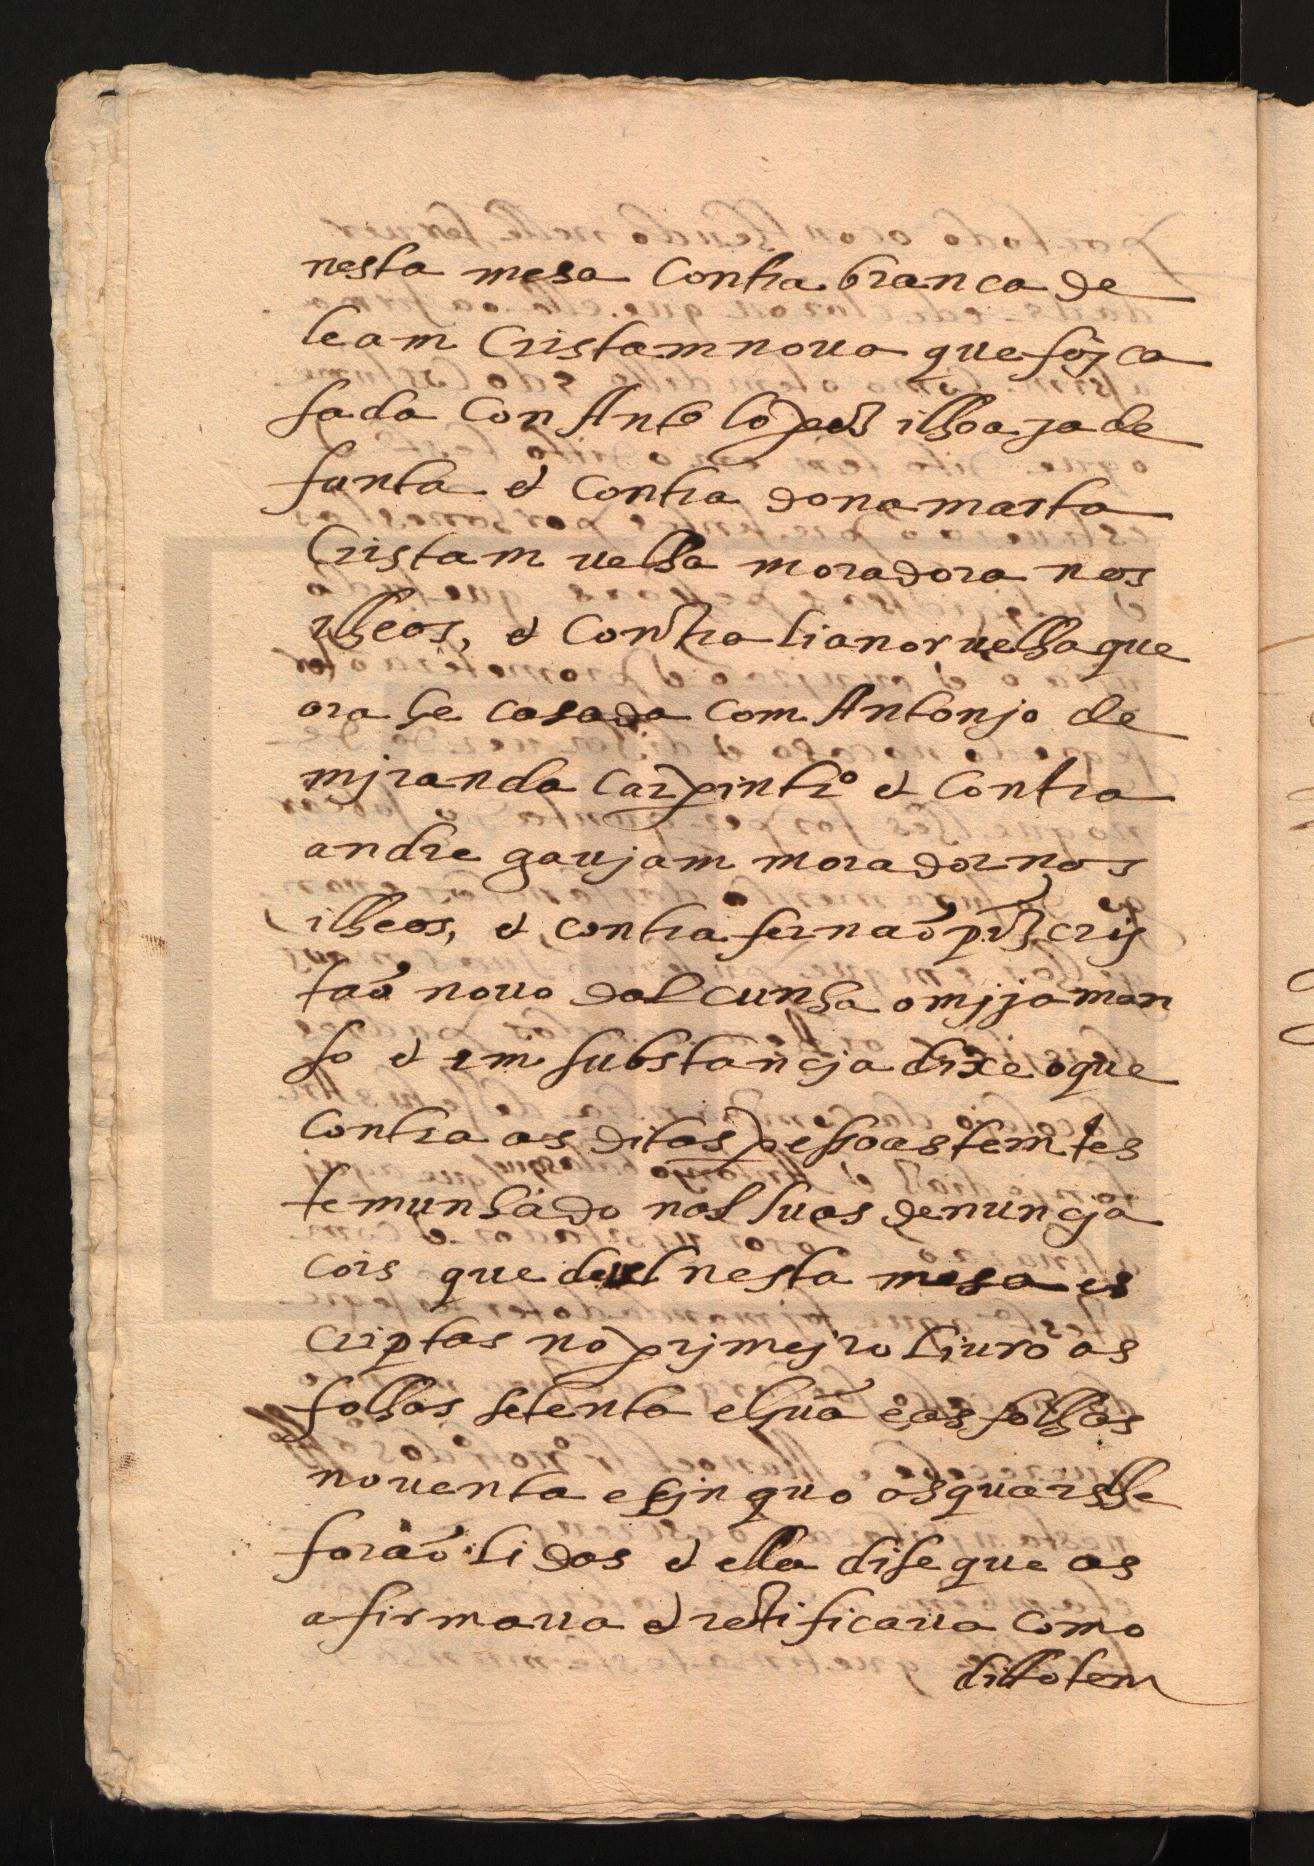 nesta mesa contra branca de
leam Cristam noua que foy ca
sada Con Antº lopes ilhoa ja de
funta et contra dona marta
Cristam uelha moradora nos
ilheos, et contra lianor uelha que
ora he casada com Antonjo de
mjranda carpintrº et contra
andre gaujam morador nos
ilheos, et contra fernaõ pĩz cris
taõ nouo dalcunha o mijo man
so et em substancja dixe o que
contra as ditas pessoas tem tes
temunhado nas suas denuncja
cois que deu nesta mesa es
criptas no primejro liuro as
folhas setenta e hũa e as folhas
nouenta e sjnquo as quais lhe
foraõ lidas et ella dise que as
afirmaua et retificaua como
ditto tem